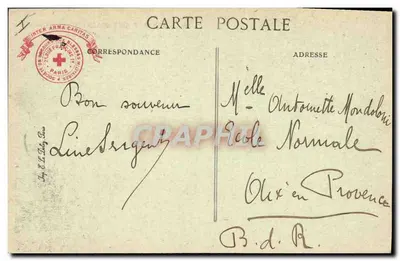 I
CARTE POSTALE
INTER ARMA CARITAS
PARIS
CORRESPONDANCE
ADRESSE
Bon souvenir
Line Sergent
Melle Antoinette Mondoloni
Ecole Normale
Aix en Provence
B. d. R.
CPAPHIL